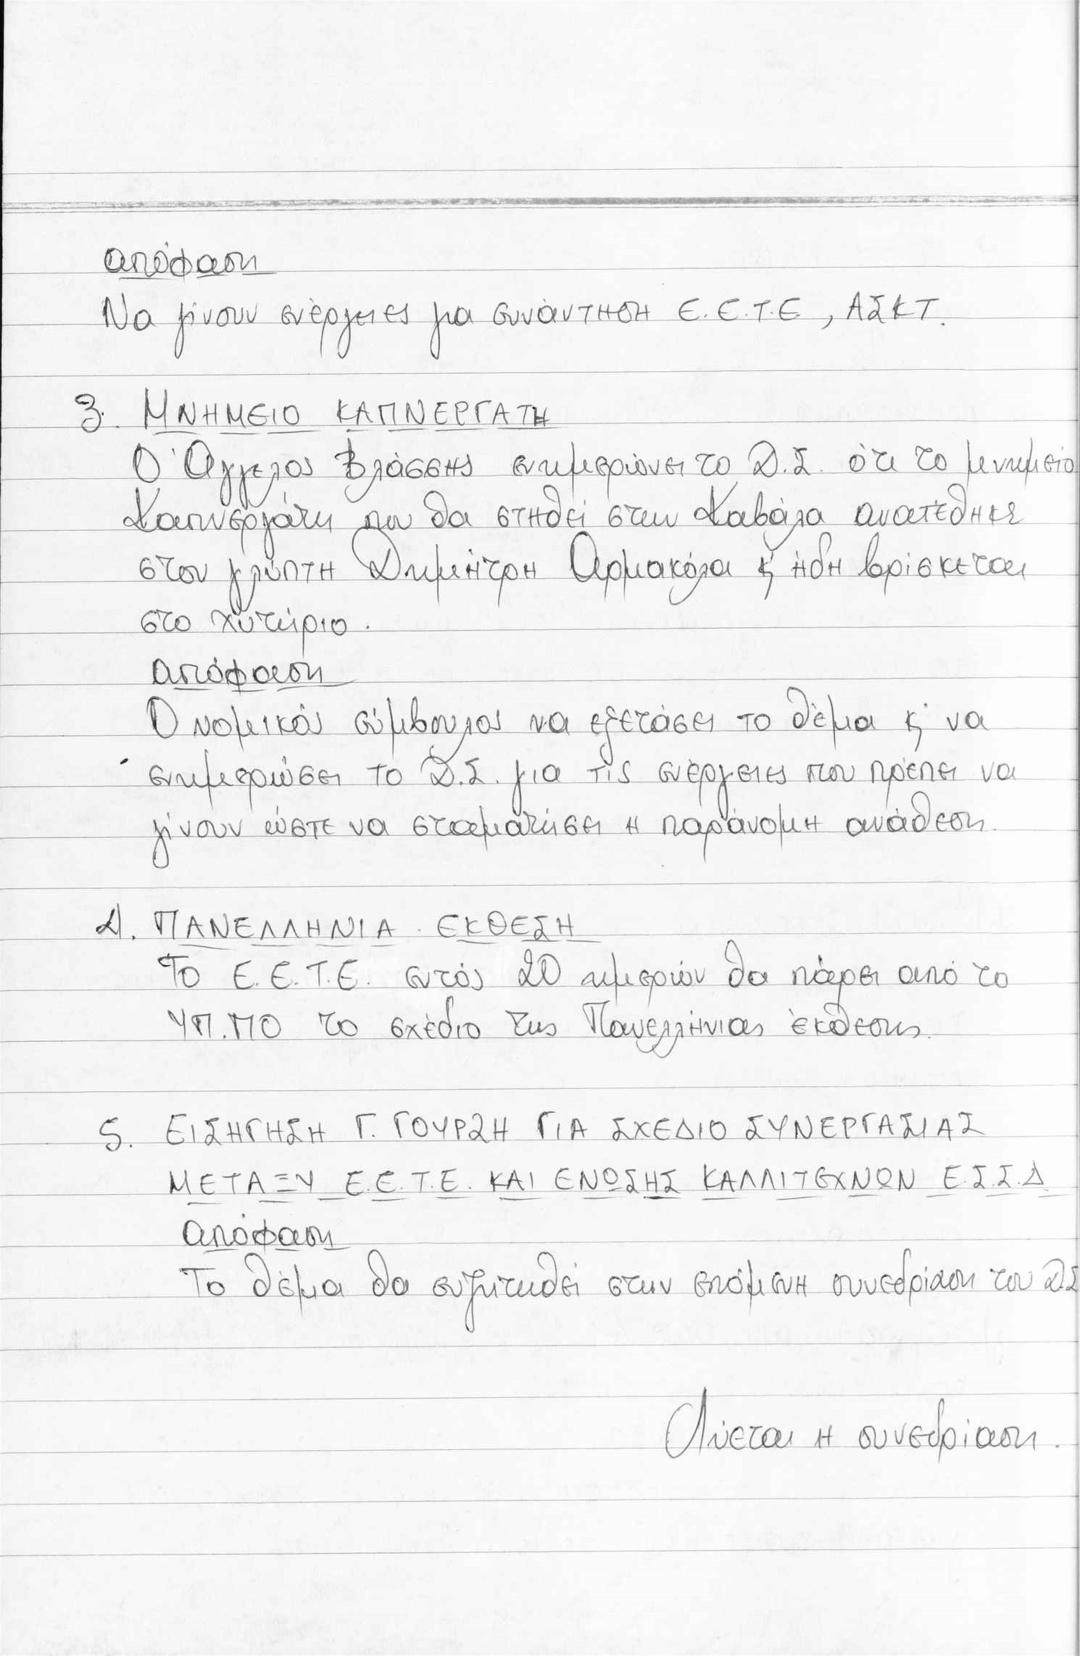 απόφαση
Να γίνουν ενέργειες για συνάντηση Ε.Ε.Τ.Ε, ΑΣΚΤ.
3. ΜΝΗΜΕΙΟ ΚΑΠΝΕΡΓΑΤΗ
Ο Άγγελος Βλάσσης ενημερώνει το Δ.Σ. ότι το μνημείο
Καπνεργάτη που θα στηθεί στην Καβάλα ανατέθηκε
στον γλύπτη Δημήτρη Αρμακόλα κ' ήδη βρίσκεται
στο χυτήριο.
απόφαση
Ο νομικός σύμβουλος να εξετάσει το θέμα κ' να
ενημερώσει το Δ.Σ. για τις ενέργειες που πρέπει να
γίνουν ώστε να σταματήσει η παράνομη ανάθεση.
4. ΠΑΝΕΛΛΗΝΙΑ ΕΚΘΕΣΗ
Το Ε.Ε.Τ.Ε. εντός 20 ημερών θα πάρει από το
ΥΠ.ΠΟ το σχέδιο της Πανελλήνιας έκθεσης.
5. ΕΙΣΗΓΗΣΗ Γ. ΓΟΥΡΖΗ ΓΙΑ ΣΧΕΔΙΟ ΣΥΝΕΡΓΑΣΙΑΣ
ΜΕΤΑΞΥ Ε.Ε.Τ.Ε. ΚΑΙ ΕΝΩΣΗΣ ΚΑΛΛΙΤΕΧΝΩΝ Ε.Σ.Σ.Δ
απόφαση
Το θέμα θα συζητηθεί στην επόμενη συνεδρίαση του Δ.Σ
Λύεται η συνεδρίαση.